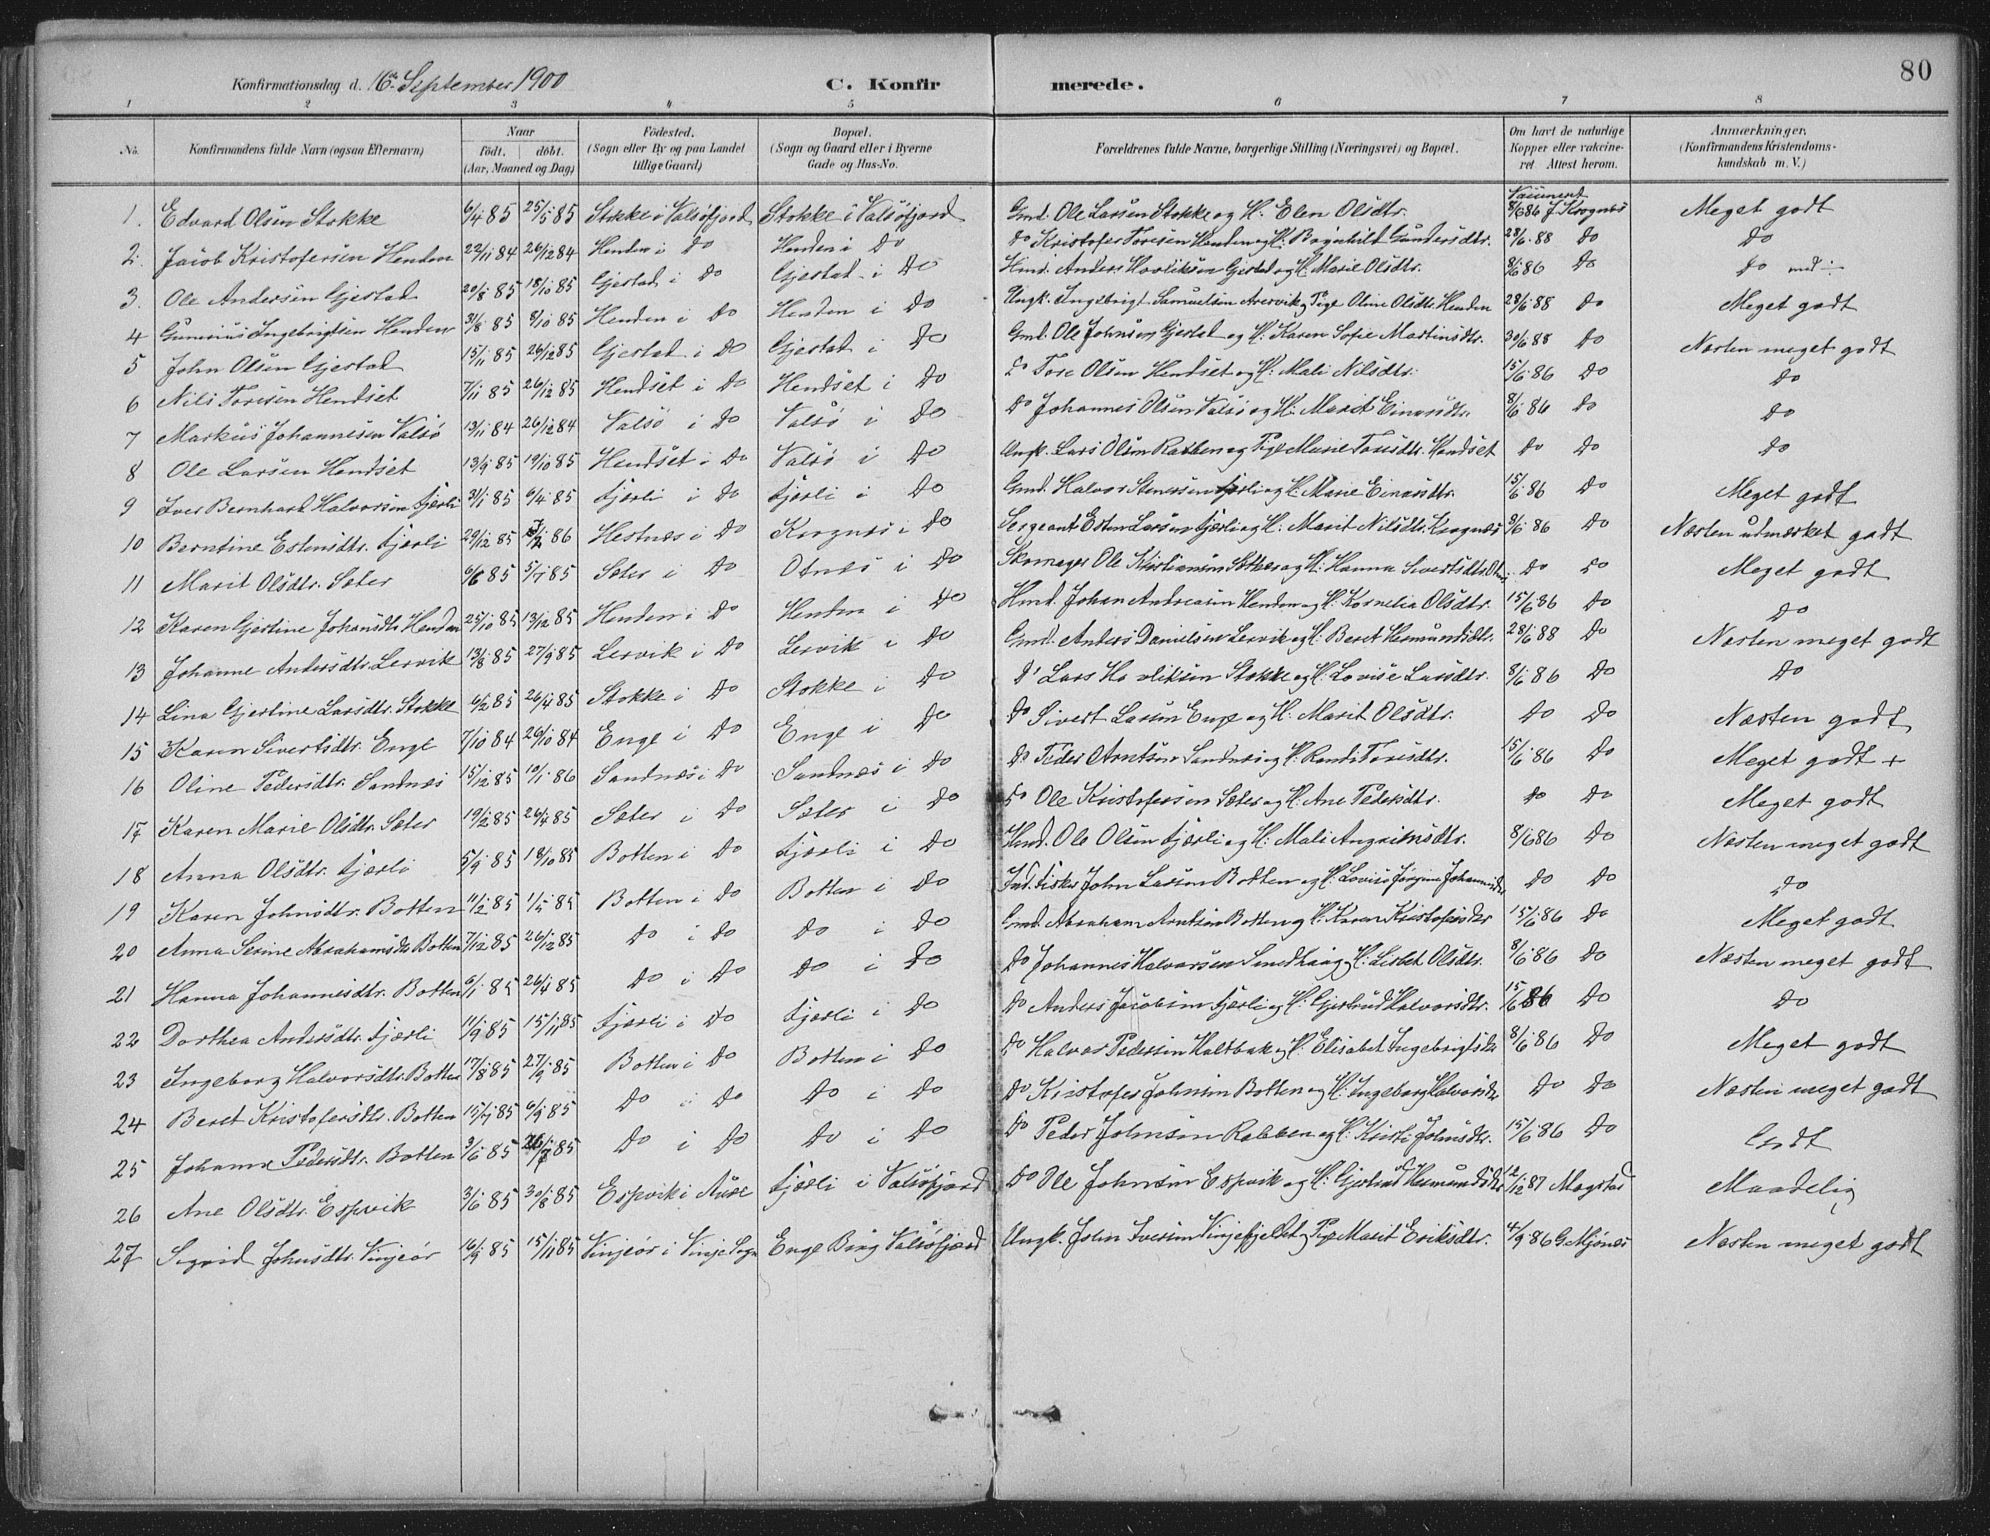 80
Konfirmationsdag d. 16de September 1900 C. Konfirmerede.
1 2 3 4 5 6 7 8
No. Konfirmandens fulde Navn (ogsaa Efternavn) Naar födt. döbt. (Aar, Maaned og Dag) Födested. (Sogn eller By og paa Landet tillige Gaard) Bopæl. (Sogn og Gaard eller i Byerne Gade og Hus-No. Forældrenes fulde Navne, borgerlige Stilling (Næringsvei) og Bopæl. Om havt de naturlige Kopper eller vakcineret. Attest herom. Anmærkninger. (Konfirmandens Kristendomskundskab m. V.)
1. Edvard Olsen Stokke 6/4 85 25/5 85 Stokke i Valsøfjord Stokke i Valsøfjord Gmd. Ole Larsen Stokke og H. Elen Olsdtr. 8/6 86 J. Krognes Meget godt
2. Jacob Kristofersen Henden 22/11 84 26/12 84 Henden i Do Henden i Do Do Kristofer Toresen Henden og H. Ragnhild Gundersdtr. 28/6 88 Do Do
3. Ole Andersen Gjestad 20/8 85 18/10 85 Gjestad i Do Gjestad i Do Hmd. Anders Havliksen Gjestad og H. Marie Olsdtr. 8/6 86 Do Do md ÷
4 Gunerius Ingebrigtsen Henden 31/8 85 8/10 85 Henden i Do Henden i Do Ungk. Ingebrigt Samuelsen Arervik og Pige Oline Olsdtr. Henden 28/6 88 Do Meget godt
5 John Olsen Gjestad 15/11 85 26/12 85 Gjestad i Do Gjestad i Do Gmd. Ole Johnsen Gjestad og H. Karen Sofie Martinsdtr. 30/6 88 Do Næsten meget godt
6 Nils Toresen Hendset 7/11 85 26/12 85 Hendset i Do Hendset i Do Do Tore Olsen Hendset og H. Mali Nilsdtr. 15/6 86 Do Do
7 Markus Johannesen Valsø 13/11 84 26/12 84 Valsø i Do Valsø i Do Do Johannes Olsen Valsø og H. Marit Einarsdtr. 8/6 86 Do Do
8 Ole Larsen Hendset 13/9 85 19/10 85 Hendset i Do Valsø i Do Ungk. Lars Olsen Rabben og Pige Marie Toresdtr. Hendset Do Do Do
9 Iver Bernhard Halvorsen Fjærli 31/1 85 6/4 85 Fjærli i Do Fjærli i Do Gmd. Halvor Stenersen Fjærli og H. Marie Einarsdtr. 15/6 86 Do Meget godt
10 Berntine Estensdtr. Fjærli 29/12 85 86 Hestnes i Do Krognes i Do Sergeant Esten Larsen Fjærli og H. Marit Nilsdtr. Krognes 8/6 86 Do Næsten udmærket godt
11 Marit Olsdtr. Sæter 6/6 85 5/7 85 Sæter i Do Otnes i Do Skomager Ole Kristiansen Sæther og H. Hanna Sivertsdtr. Do Do Meget godt
12 Karen Gjertine Johansdtr. Henden 25/10 85 13/12 85 Henden i Do Henden i Do Hmd. Johan Andreasen Henden og H. Kornelia Olsdtr. 15/6 86 Do Do
13 Johanne Andersdtr. Lervik 13/8 85 27/9 85 Lervik i Do Lervik i Do Gmd. Anders Danielsen Lervik og H. Beret Hermundsdtr. 28/6 88 Do Næsten meget godt
14 Lina Gjertine Larsdtr. Stokke 6/2 85 26/4 85 Stokke i Do Stokke i Do Do Lars Havliksen Stokke og H. Lovise Larsdtr. 8/6 86 Do Do
15 Karen Sivertsdtr. Enge 7/10 84 26/10 84 Enge i Do Enge i Do Do Sivert Larsen Enge og H. Marit Olsdtr. Do Do Næsten godt
16 Oline Pedersdtr. Sandnes 15/12 85 10/1 86 Sandnes i Do Sandnes i Do Do Peder Arntsen Sandnes og H. Randi Toresdtr. 15/6 86 Do Meget godt +
17 Karen Marie Olsdtr. Sæter 19/2 85 26/4 85 Sæter i Do Sæter i Do Do Ole Kristofersen Sæter og H. Ane Pedersdtr. Do Do Meget godt
18 Anna Olsdtr. Fjærli 5/9 85 18/10 85 Botten i Do Fjærli i Do Hmd. Ole Olsen Fjærli og H. Mali Angrimsdtr. 8/6 86 Do Næsten meget godt
19 Karen Johnsdtr. Botten 11/2 85 1/5 85 Botten i Do Botten i Do Ind. Fisker John Larsen Botten og H. Lovise Jørgine Do Do Do
20 Anna Serine Abrahamsdtr. Botten 7/12 85 26/12 85 Do i Do Do i Do Gmd. Abraham Arntsen Botten og H. Karen Kristofersdtr 15/6 86 Do Meget godt
21 Hanna Johannesdtr. Botten 6/1 85 26/4 85 Do i Do Do i Do Do Johannes Halvorsen Smedhaug H. Lisbet Olsdtr. 8/6 86 Do Næsten meget godt
22 Dorthea Andersdtr. Fjærli 11/9 85 15/11 85 Fjærli i Do Fjærli i Do Do Anders Jacobsen Fjærli og H. Gjertrud Halvorsdtr. 15/6 86 Do Do
23 Ingeborg Halvorsdtr. Botten 17/8 85 27/9 85 Botten i Do Botten i Do Do Halvor Pedersen Haltbak og H. Elisabet Ingebrigtsdtr 8/6 86 Do Meget godt
24 Beret Kristofersdtr. Botten 15/7 85 6/9 85 Do i Do Do i Do Do Kristofer Johnsen Botten og H. Ingeborg Halvorsdtr Do Do Næsten meget godt
25 Johanna Pedersdtr. Botten 3/6 85 26/7 85 Do i Do Do i Do Do Peder Johnsen Rabben og H. Kirsti Johnsdtr. 15/6 86 Do Godt
26 Ane Olsdtr. Espvik 3/6 85 30/8 85 Espvik i Aure Fjærli i Valsøfjord Do Ole Johnsen Espvik og H. Gjertrud Hermundsdtr 12/12 87 Mogstad Maadelig
27 Sigrid Johnsdtr. Vinjeör 16/9 85 15/11 85 Vinjeör i Vinje Sogn Enge Valsøfjord Ungk. John Iversen Vinjefjeldet og Pige Marit Eriksdtr. 4/9 86 G. Mjönes Næsten meget godt